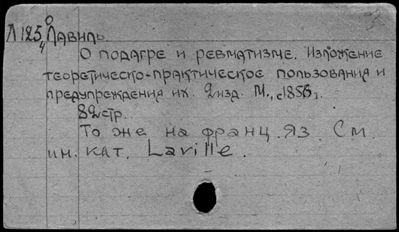 Л 125 Лавиль.
О подагре и ревматизме. Изложение
теоретическо-практическое пользования и
предупреждения их. 2 изд. М.,
82 стр.
То же на франц. яз. См.
ин. кат. Laville.